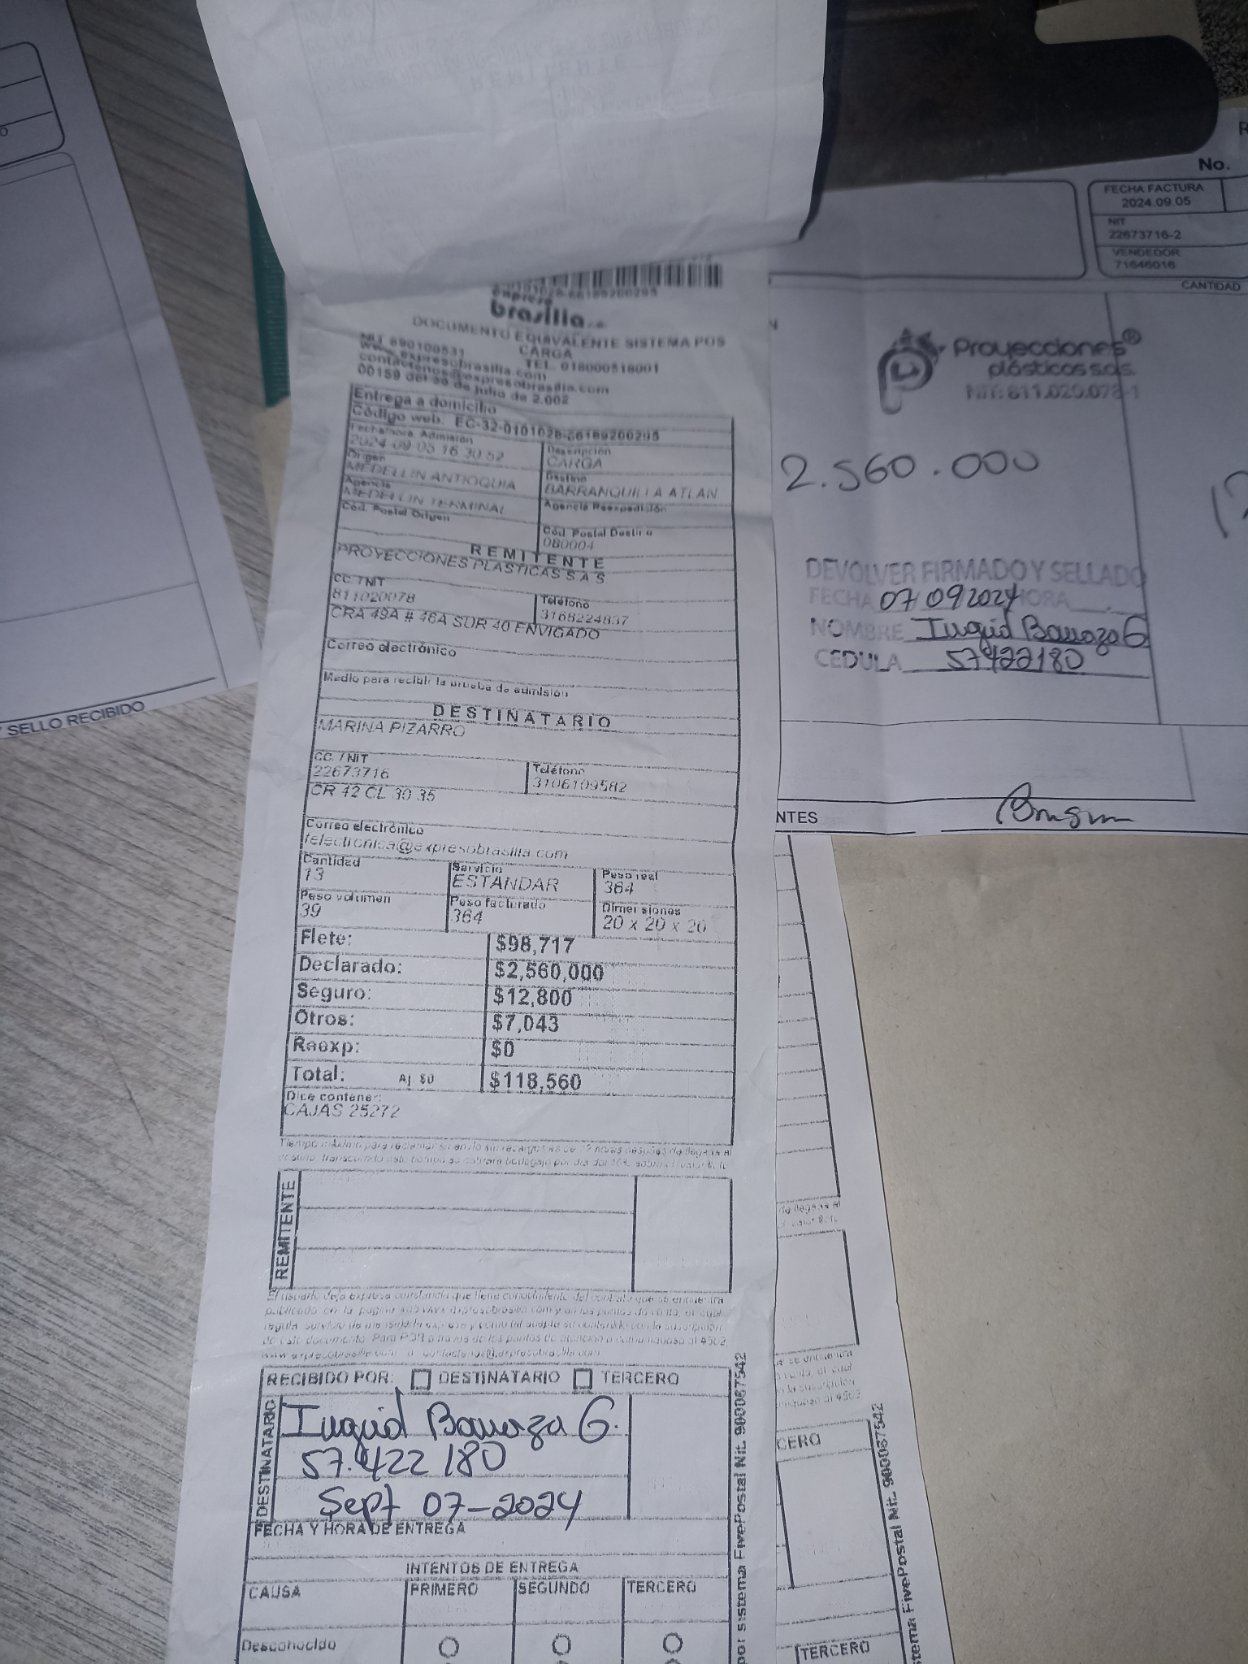 brasilia
DOCUMENTO EQUIVALENTE SISTEMA POS
CARGA
NIT 890100531
TEL. 018000518001
www.expresobrasilia.com
contactenos@expresobrasilia.com
00159 del 30 de julio de 2.002
Entrega a domicilio
Código web: EC-32-0101028-66189200295
Fecha/hora Admisión
2024-09-05 16:30:52
Descripción
CARGA
Origen
MEDELLIN ANTIOQUIA
Destino
BARRANQUILLA ATLAN
Agencia
MEDELLIN TERMINAL
Agencia Reexpedición
Cód. Postal Origen
Cód. Postal Destino
080004
REMITENTE
PROYECCIONES PLASTICAS S A S
CC / NIT
811020078
Teléfono
3168224837
CRA 49A # 46A SUR 40 ENVIGADO
Correo electrónico
Medio para recibir la prueba de admisión
DESTINATARIO
MARINA PIZARRO
CC / NIT
22673716
Teléfono
3106109582
CR 42 CL 30 35
Correo electrónico
felectronica@expresobrasilia.com
Cantidad
13
Servicio
ESTANDAR
Peso real
364
Peso volumen
39
Peso facturado
364
Dimensiones
20 x 20 x 20
Flete: $98,717
Declarado: $2,560,000
Seguro: $12,800
Otros: $7,043
Reexp: $0
Total: Aj $0 $118,560
Dice contener:
CAJAS 25272
REMITENTE
RECIBIDO POR: DESTINATARIO TERCERO
DESTINATARIO
Ingrid Barraza G.
57.422 180
Sept 07-2024
FECHA Y HORA DE ENTREGA
INTENTOS DE ENTREGA
CAUSA PRIMERO SEGUNDO TERCERO
Desconocido
por sistema FivePostal Nit. 900087542
SELLO RECIBIDO
No.
FECHA FACTURA
2024.09.05
NIT
22673716-2
VENDEDOR
71646016
CANTIDAD
Proyecciones®
plásticas s.a.s.
NIT: 811.020.078-1
2.560.000
DEVOLVER FIRMADO Y SELLADO
FECHA 07 09 2024 HORA
NOMBRE Ingrid Barraza G
CEDULA 57422180
NTES
CERO
stema FivePostal Nit. 900087542
TERCERO